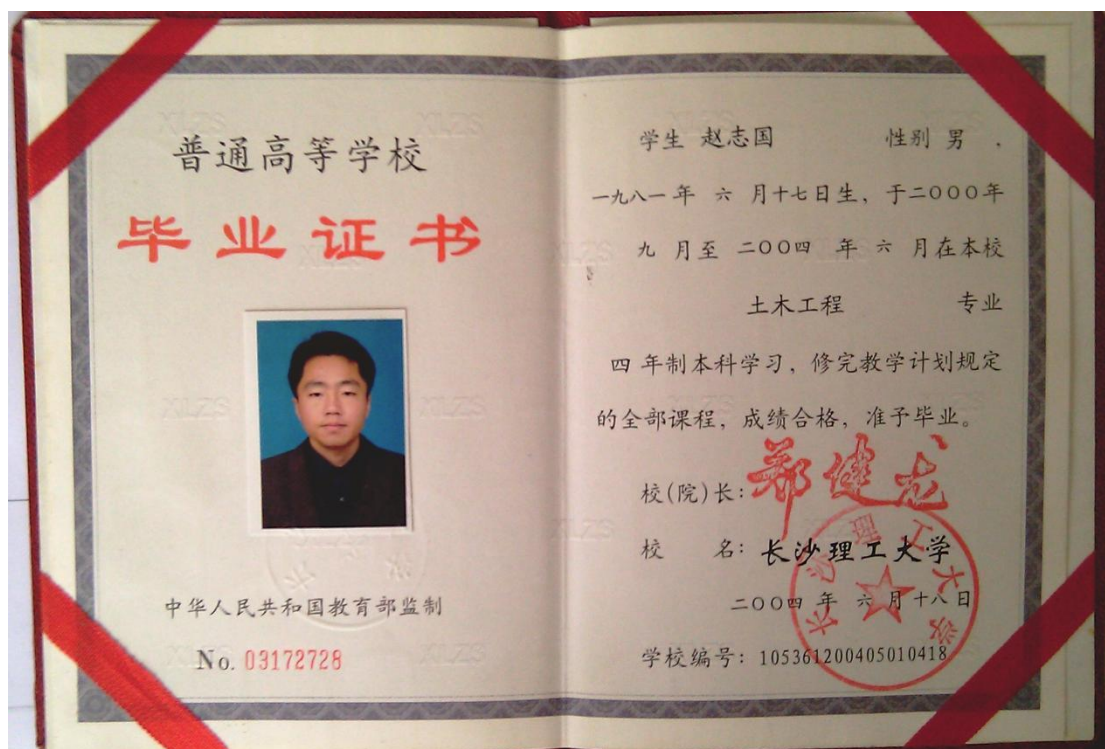 普通高等学校
毕业证书
中华人民共和国教育部监制
No. 03172728
学生 赵志国 性别 男 ，
一九八一 年 六 月十七日生，于二〇〇〇年
九 月至 二〇〇四 年 六 月在本校
土木工程 专业
四 年制本科学习，修完教学计划规定
的全部课程，成绩合格，准予毕业。
校(院)长：郑健龙
校 名：长沙理工大学
二〇〇四 年 六 月 十八 日
学校编号：105361200405010418
长沙理工大学
XLZS